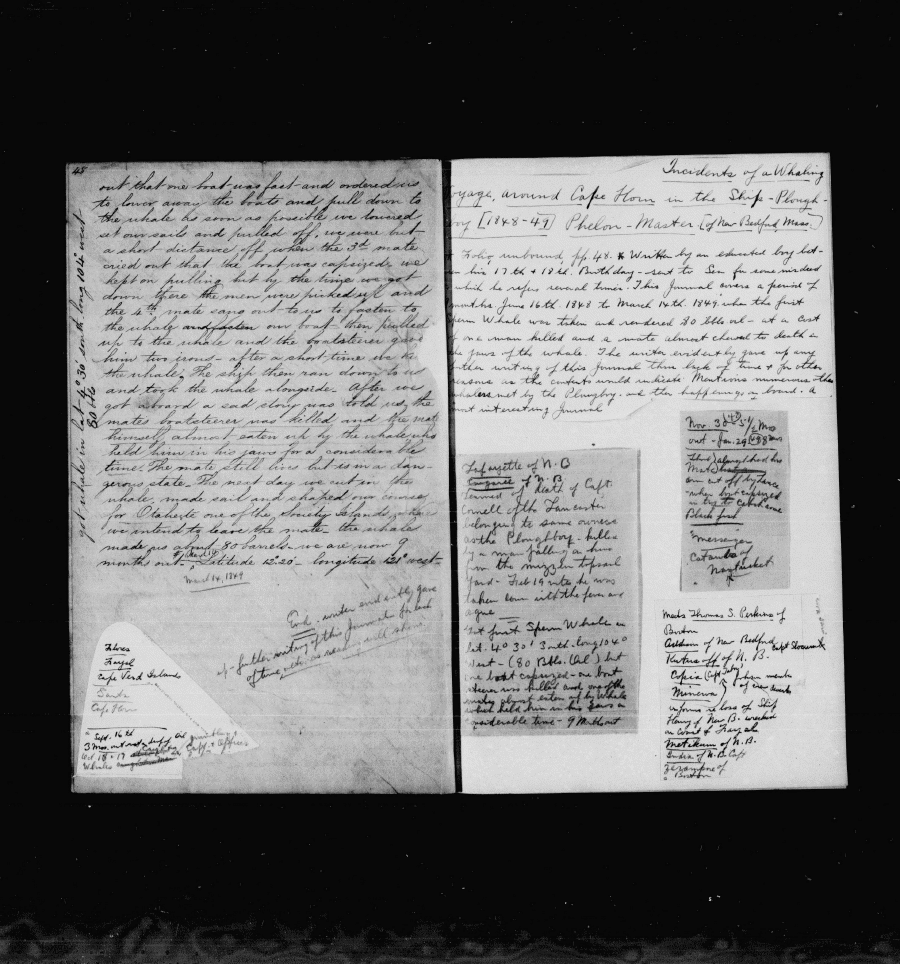 48
out that one boat was fast and ordered us
to lower away the boats and pull down to
the whale as soon as possible we lowered
set our sails and pulled off, we were but
a short distance off when the 3d mate
cried out that the boat was capsized we
kept on pulling but by the time we got
down there the men were picked up and
the 4th mate sang out to us to fasten to
the whale our boat then pulled
up to the whale and the boatsteerer gave
him two irons - after a short time we
the whale, The ship then ran down to us
and took the whale alongside. After we
got aboard a sad story was told us, the
mates boatsteerer was killed and the mate
himself almost eaten up by the whale who
held him in his jaws for a considerable
time. The mate still lives but is in a dan-
gerous state. The next day we cut in the
whale, made sail and shaped our course
for Otaheite one of the Society Islands, where
we intend to leave the mate, the whale
made us about 80 barrels - we are now 9
months out - Latitude 12°20' - longitude 121° west -
March 14, 1849
got whale in lat 4° 30' south long 104° west
80 bbls
End. writer evidently gave
up further writing of this Journal for lack
of time
Flores
Fayal
Cape Verd Islands
Cape Horn
Sept. 16th
3 Mos. out
Oct 18 + 19
Whales
Incidents of a Whaling
oyage, around Cape Horn in the Ship - Plough-
boy [1848-49] Phelon - Master [of New Bedford, Mass.]
Folio unbound pp. 48. Written by an educated boy bet-
n his 17th & 18th. Birthday - sent to Sea for some misdeed
which he refers several times. This Journal covers a period of
months June 16th 1848 to March 14th 1849 when the first
perm Whale was taken and rendered 80 bbls oil - at a cost
f one man killed and a mate almost chewed to death in
the jaws of the whale. The writer evidently gave up any
further writing of this Journal thru lack of time & for other
reasons as the context would indicate. Mentions numerous other
whalers met by the Plougboy and other happenings on board. A
most interesting Journal
Lafayette of N.B
of N.B
Learned of death of Capt.
Cornell of the Lancaster
belonging to same owners
as the Ploughboy - killed
by a man falling on him
from the mizzin topsail
yard - Feb 19 into he was
taken down with the fever and
ague
1st first Sperm Whale in
lat. 4° 30' South. Long 104°
West - (80 Bbls. Oil) but
one boat capsized - one boat
steerer was killed and one of the
mates almost eaten by Whale
which held him in his jaws a
considerable time - 9 Mos out
Nov. 3d - 5 1/2 Mos
out - Jan. 29
Mate
arm cut off by
when boat capsized
in try to catch some
Black fish
Messenger
Catawba of
Nantucket
Meets Thomas S. Perkins of
Boston
of New Bedford Capt
of N. B.
Copia (Capt
Minerva
informs of loss of Ship
Henry of New B. wrecked
on Coast of
of N.B.
India of N.B. Capt
of
Boston